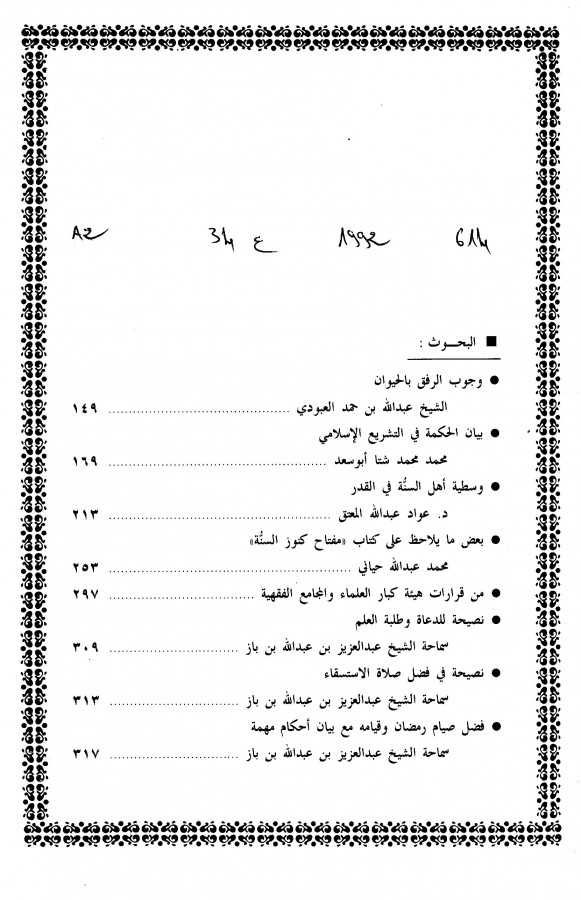 614 1992 ع 34 A2
■ البحــوث :
● وجوب الرفق بالحيوان
الشيخ عبدالله بن حمد العبودي ........ ١٤٩
● بيان الحكمة في التشريع الإسلامي
محمد محمد شتا أبوسعد ........ ١٦٩
● وسطية أهل السنُّة في القدر
د. عواد عبدالله المعتق ........ ٢١٣
● بعض ما يلاحظ على كتاب «مفتاح كنوز السنُّة»
محمد عبدالله حياني ........ ٢٥٣
● من قرارات هيئة كبار العلماء والمجامع الفقهية ........ ٢٩٧
● نصيحة للدعاة وطلبة العلم
سماحة الشيخ عبدالعزيز بن عبدالله بن باز ........ ٣٠٩
● نصيحة في فضل صلاة الاستسقاء
سماحة الشيخ عبدالعزيز بن عبدالله بن باز ........ ٣١٣
● فضل صيام رمضان وقيامه مع بيان أحكام مهمة
سماحة الشيخ عبدالعزيز بن عبدالله بن باز ........ ٣١٧